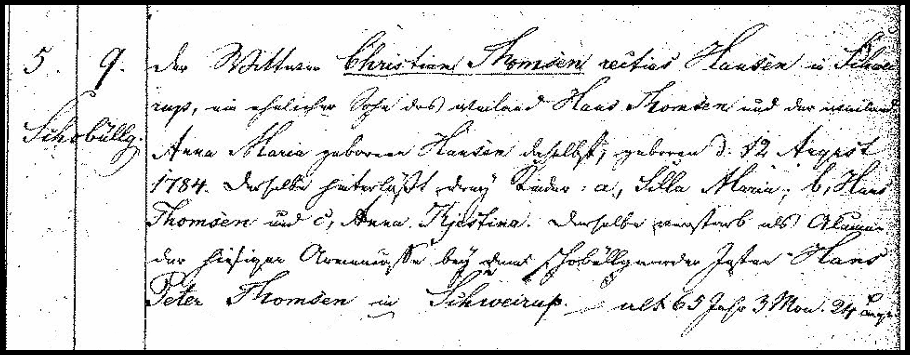 5. 9. der Wittwer Christian Thomsen rectius Hansen in Schwei
rup, ein ehelicher Sohn des weiland Hans Thomsen und der weiland
Schobüllg. Anna Maria geborene Hansen daselbst, geboren d. 12 August
1784. Derselbe hinterläßt drey Kinder: a, Silla Maria; b, Hans
Thomsen und c, Anna Kjestina. Derselbe verstarb als Alumne
der hiesigen Armencasse bey dem schobüllgaarder Insten Hans
Peter Thomsen in Schweirup. alt 65 Jahr 3 Mon. 24 Tage